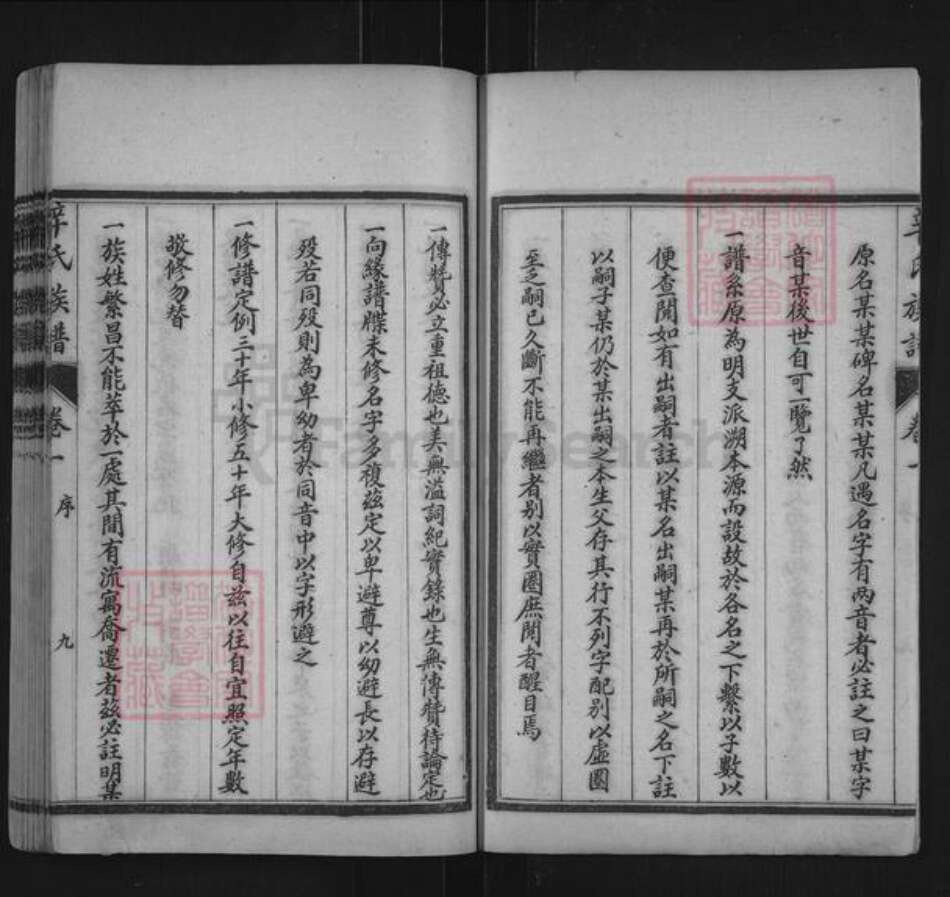 原名某某碑名某某凡遇名字有兩音者必註之曰某字
音某後世自可一覽了然
一譜系原為明支派溯本源而設故於各名之下繫以子數以
便查閱如有出嗣者註以某名出嗣某再於所嗣之名下註
以嗣子某仍於某出嗣之本生父存其行不列字配別以虛圈
至乏嗣已久斷不能再繼者别以實圈庶閱者醒目焉
一傳贊必立重祖德也美無溢詞紀實錄也生無傳贊待論定也
一向緣譜牒未修名字多複茲定以卑避尊以幼避長以存避
歿若同歿則為卑幼者於同音中以字形避之
一修譜定例三十年小修五十年大修自茲以往自宜照定年數
敬修勿替
一族姓繁昌不能萃於一處其間有流寓喬遷者茲必註明某
辛氏族譜 卷一 序 九
FamilySearch